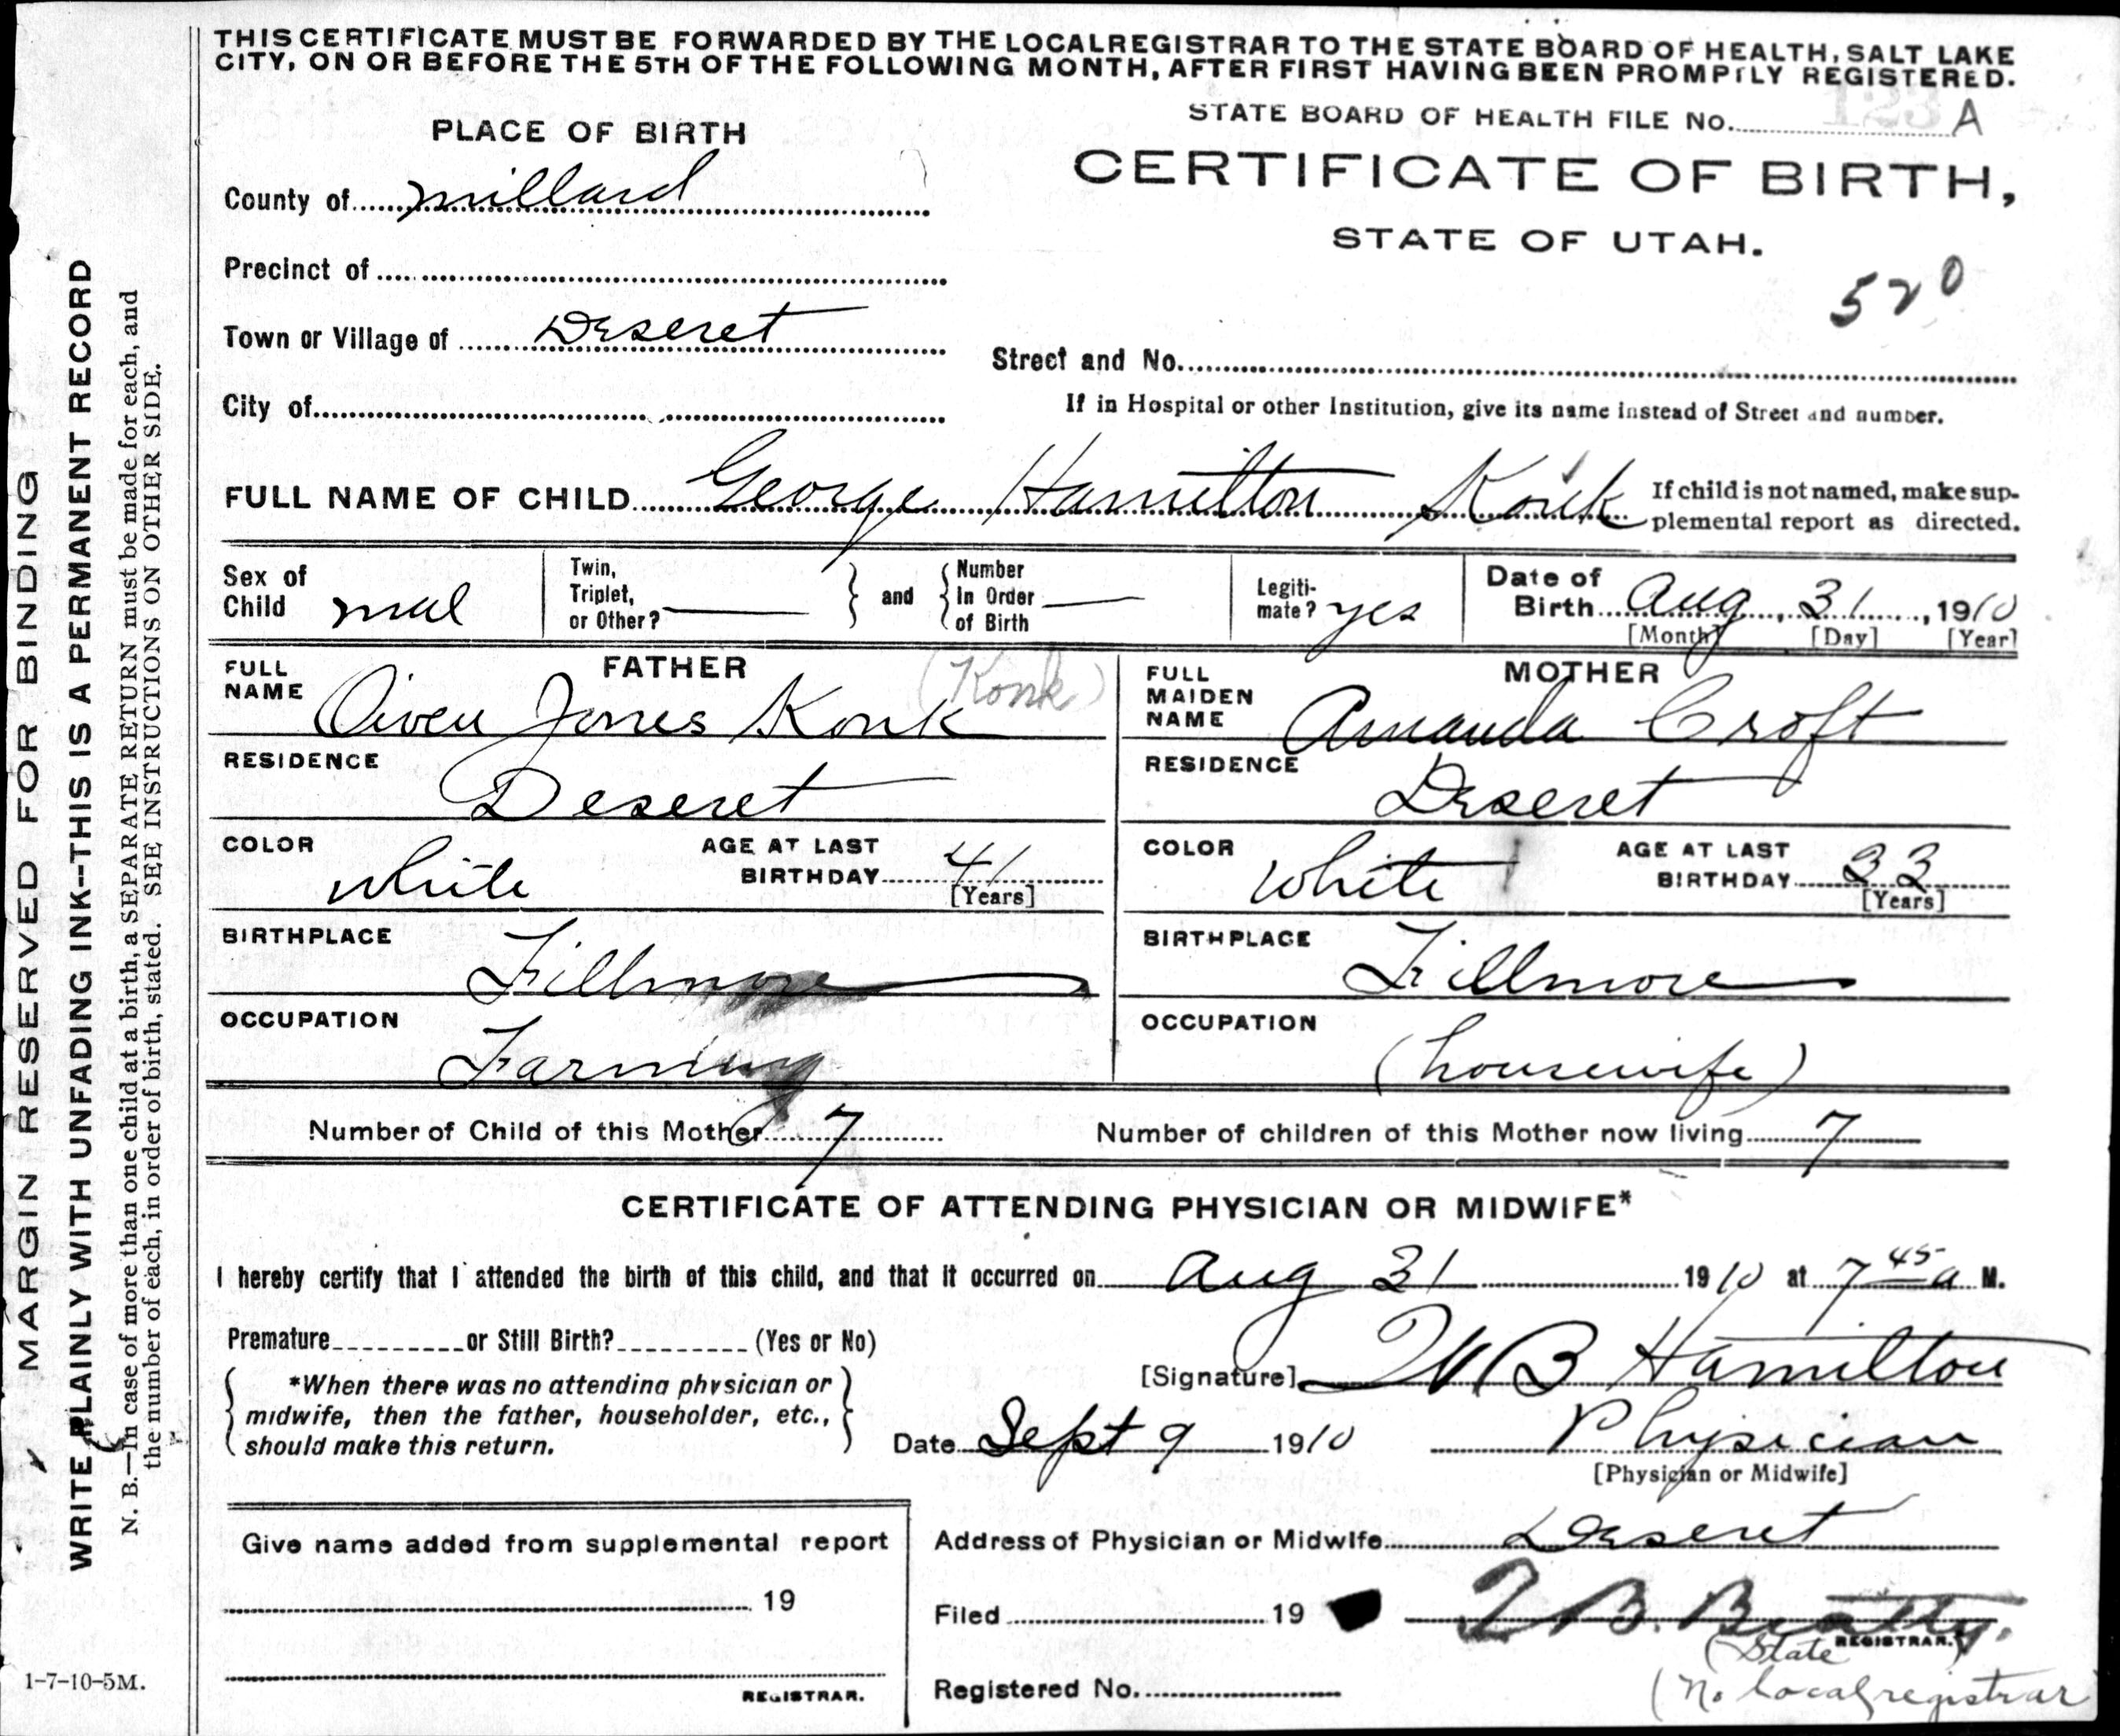 THIS CERTIFICATE MUST BE FORWARDED BY THE LOCAL REGISTRAR TO THE STATE BOARD OF HEALTH, SALT LAKE
CITY, ON OR BEFORE THE 5TH OF THE FOLLOWING MONTH, AFTER FIRST HAVING BEEN PROMPTLY REGISTERED.
STATE BOARD OF HEALTH FILE No. A
PLACE OF BIRTH
CERTIFICATE OF BIRTH,
County of Millard
STATE OF UTAH.
Precinct of
520
Town or Village of Deseret
Street and No.
City of
If in Hospital or other Institution, give its name instead of Street and number.
FULL NAME OF CHILD George Hamilton Konk
If child is not named, make sup-
plemental report as directed.
Sex of
Child mal
Twin,
Triplet,
or Other?
and
Number
In Order
of Birth
Legiti-
mate? yes
Date of
Birth Aug, 31, 1910
[Month] [Day] [Year]
FATHER
(Konk)
FULL
NAME
Owen Jones Konk
MOTHER
FULL
MAIDEN
NAME
Amanda Croft
RESIDENCE
Deseret
RESIDENCE
Deseret
COLOR
white
AGE AT LAST
BIRTHDAY 41
[Years]
COLOR
White
AGE AT LAST
BIRTHDAY 33
[Years]
BIRTHPLACE
Fillmore
BIRTHPLACE
Fillmore
OCCUPATION
Farming
OCCUPATION
(housewife)
Number of Child of this Mother 7
Number of children of this Mother now living 7
CERTIFICATE OF ATTENDING PHYSICIAN OR MIDWIFE*
I hereby certify that I attended the birth of this child, and that it occurred on Aug 31 1910 at 7 45 a M.
Premature or Still Birth? (Yes or No)
*When there was no attending physician or
midwife, then the father, householder, etc.,
should make this return.
[Signature] W B Hamilton
Date Sept 9 1910
Physician
[Physician or Midwife]
Give name added from supplemental report
19
REGISTRAR.
Address of Physician or Midwife Deseret
Filed 19
T. B. Beatty.
REGISTRAR.
(State
Registered No.
(No local registrar
1-7-10-5M.
MARGIN RESERVED FOR BINDING
WRITE PLAINLY WITH UNFADING INK--THIS IS A PERMANENT RECORD
N. B.—In case of more than one child at a birth, a SEPARATE RETURN must be made for each, and
the number of each, in order of birth, stated. SEE INSTRUCTIONS ON OTHER SIDE.